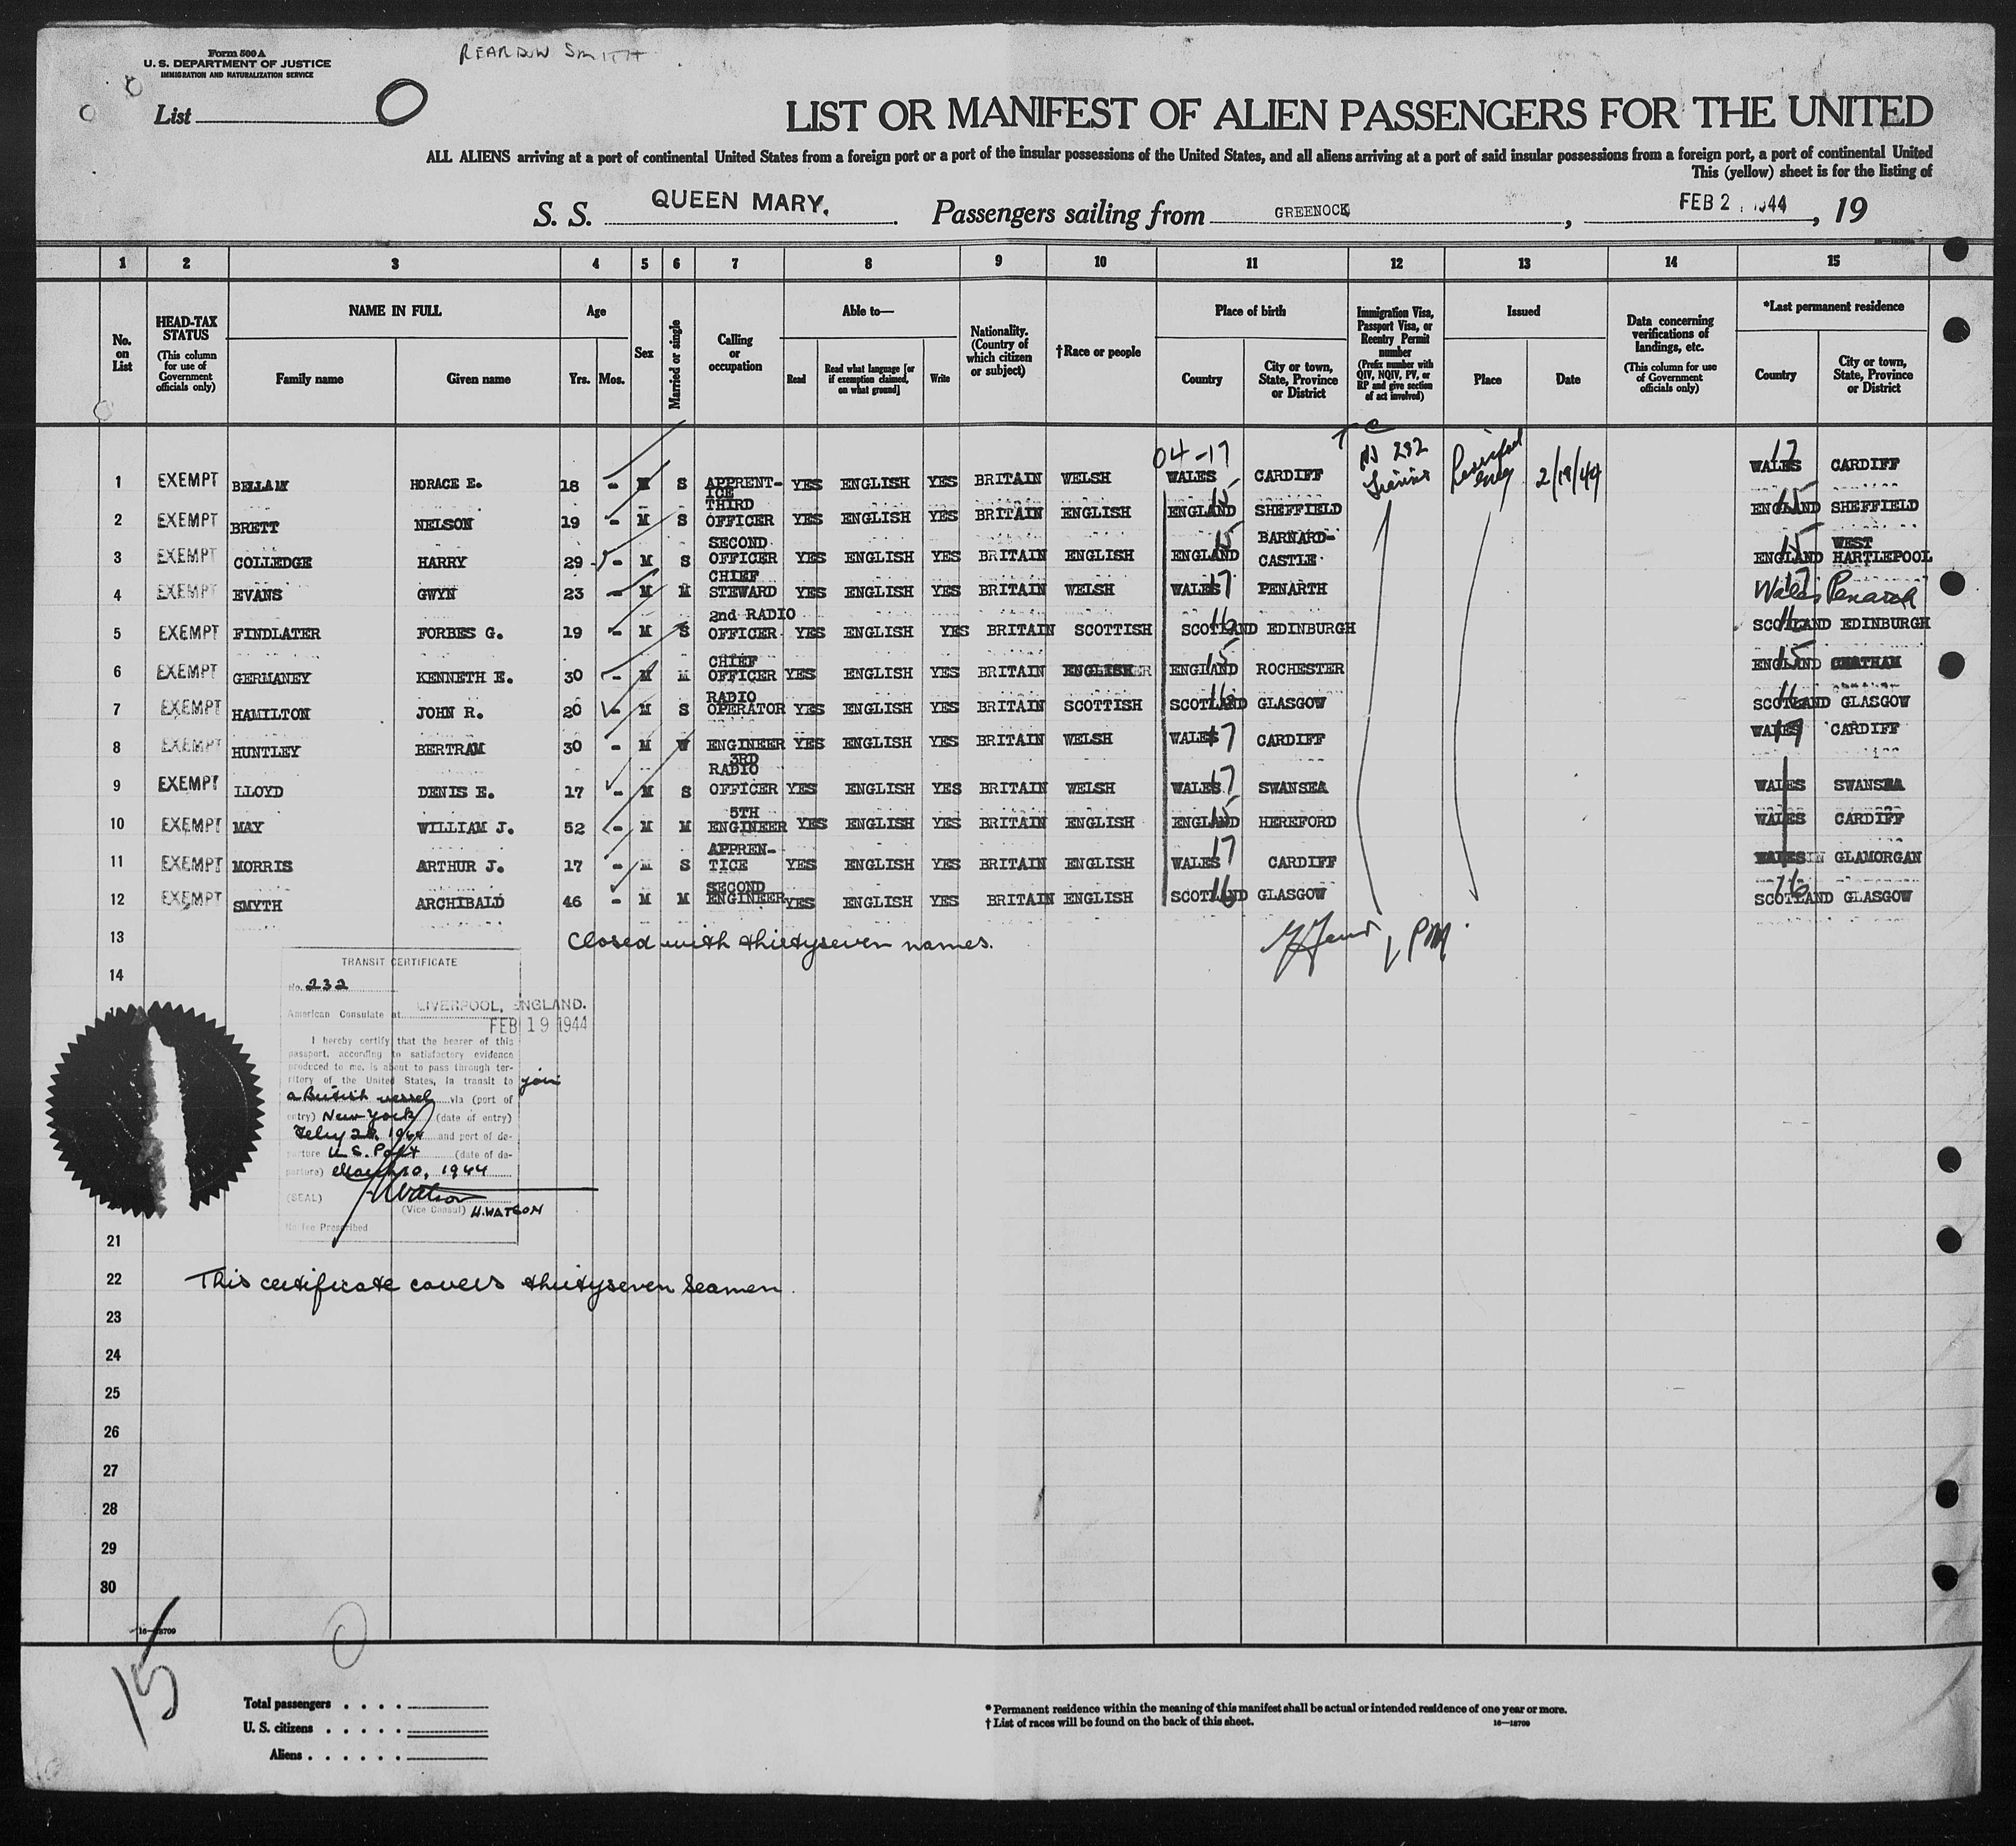 Form 500 A
U. S. DEPARTMENT OF JUSTICE
IMMIGRATION AND NATURALIZATION SERVICE
REARDON SMITH
List
LIST OR MANIFEST OF ALIEN PASSENGERS FOR THE UNITED
ALL ALIENS arriving at a port of continental United States from a foreign port or a port of the insular possessions of the United States, and all aliens arriving at a port of said insular possessions from a foreign port, a port of continental United
This (yellow) sheet is for the listing of
S. S. QUEEN MARY. Passengers sailing from GREENOCK, FEB 2 , 1944, 19
1 2 3 4 5 6 7 8 9 10 11 12 13 14 15
No. on List
HEAD-TAX STATUS (This column for use of Government officials only)
NAME IN FULL Family name Given name
Age Yrs. Mos.
Sex
Married or single
Calling or occupation
Able to— Read Read what language [or if exemption claimed, on what ground] Write
Nationality. (Country of which citizen or subject)
†Race or people
Place of birth Country City or town, State, Province or District
Immigration Visa, Passport Visa, or Reentry Permit number (Prefix number with QIV, NQIV, PV, or RP and give section of act involved)
Issued Place Date
Data concerning verifications of landings, etc. (This column for use of Government officials only)
*Last permanent residence Country City or town, State, Province or District
04-17 T C 232 17
1 EXEMPT BELLAM HORACE E. 18 - M S APPRENT-ICE YES ENGLISH YES BRITAIN WELSH WALES CARDIFF 2/19/44 WALES CARDIFF
2 EXEMPT BRETT NELSON 19 - M S THIRD OFFICER YES ENGLISH YES BRITAIN ENGLISH ENGLAND 15 SHEFFIELD ENGLAND 15 SHEFFIELD
3 EXEMPT COLLEDGE HARRY 29 - M S SECOND OFFICER YES ENGLISH YES BRITAIN ENGLISH ENGLAND 15 BARNARD-CASTLE ENGLAND 15 WEST HARTLEPOOL
4 EXEMPT EVANS GWYN 23 - M M CHIEF STEWARD YES ENGLISH YES BRITAIN WELSH WALES 17 PENARTH Wales 17 Penarth
5 EXEMPT FINDLATER FORBES G. 19 - M S 2nd RADIO OFFICER YES ENGLISH YES BRITAIN SCOTTISH SCOTLAND 16 EDINBURGH SCOTLAND 16 EDINBURGH
6 EXEMPT GERMANEY KENNETH E. 30 - M M CHIEF OFFICER YES ENGLISH YES BRITAIN ENGLISH ENGLAND 15 ROCHESTER ENGLAND 15 CHATHAM
7 EXEMPT HAMILTON JOHN R. 20 - M S RADIO OPERATOR YES ENGLISH YES BRITAIN SCOTTISH SCOTLAND 16 GLASGOW SCOTLAND 16 GLASGOW
8 EXEMPT HUNTLEY BERTRAM 30 - M W ENGINEER YES ENGLISH YES BRITAIN WELSH WALES 17 CARDIFF WALES 17 CARDIFF
9 EXEMPT LLOYD DENIS E. 17 - M S 3RD RADIO OFFICER YES ENGLISH YES BRITAIN WELSH WALES 17 SWANSEA WALES SWANSEA
10 EXEMPT MAY WILLIAM J. 52 - M M 5TH ENGINEER YES ENGLISH YES BRITAIN ENGLISH ENGLAND 15 HEREFORD WALES CARDIFF
11 EXEMPT MORRIS ARTHUR J. 17 - M S APPREN-TICE YES ENGLISH YES BRITAIN ENGLISH WALES 17 CARDIFF WALES GLAMORGAN
12 EXEMPT SMYTH ARCHIBALD 46 - M M SECOND ENGINEER YES ENGLISH YES BRITAIN ENGLISH SCOTLAND 16 GLASGOW SCOTLAND 16 GLASGOW
13 Closed with thirtyseven names.
14
TRANSIT CERTIFICATE
No. 232
American Consulate at LIVERPOOL, ENGLAND.
FEB 19 1944
I hereby certify that the bearer of this
passport, according to satisfactory evidence
produced to me, is about to pass through ter-
ritory of the United States, in transit to join
a British vessel via (port of
entry) New York (date of entry)
Feby 28, 1944 and port of de-
parture U.S. Port (date of de-
parture) March 10, 1944
(SEAL) H Watson
(Vice Consul) H. WATSON
No fee Prescribed
21
22 This certificate covers thirtyseven Seamen.
23
24
25
26
27
28
29
30
16—18709
15
Total passengers
U. S. citizens
Aliens
* Permanent residence within the meaning of this manifest shall be actual or intended residence of one year or more.
† List of races will be found on the back of this sheet. 16—18709